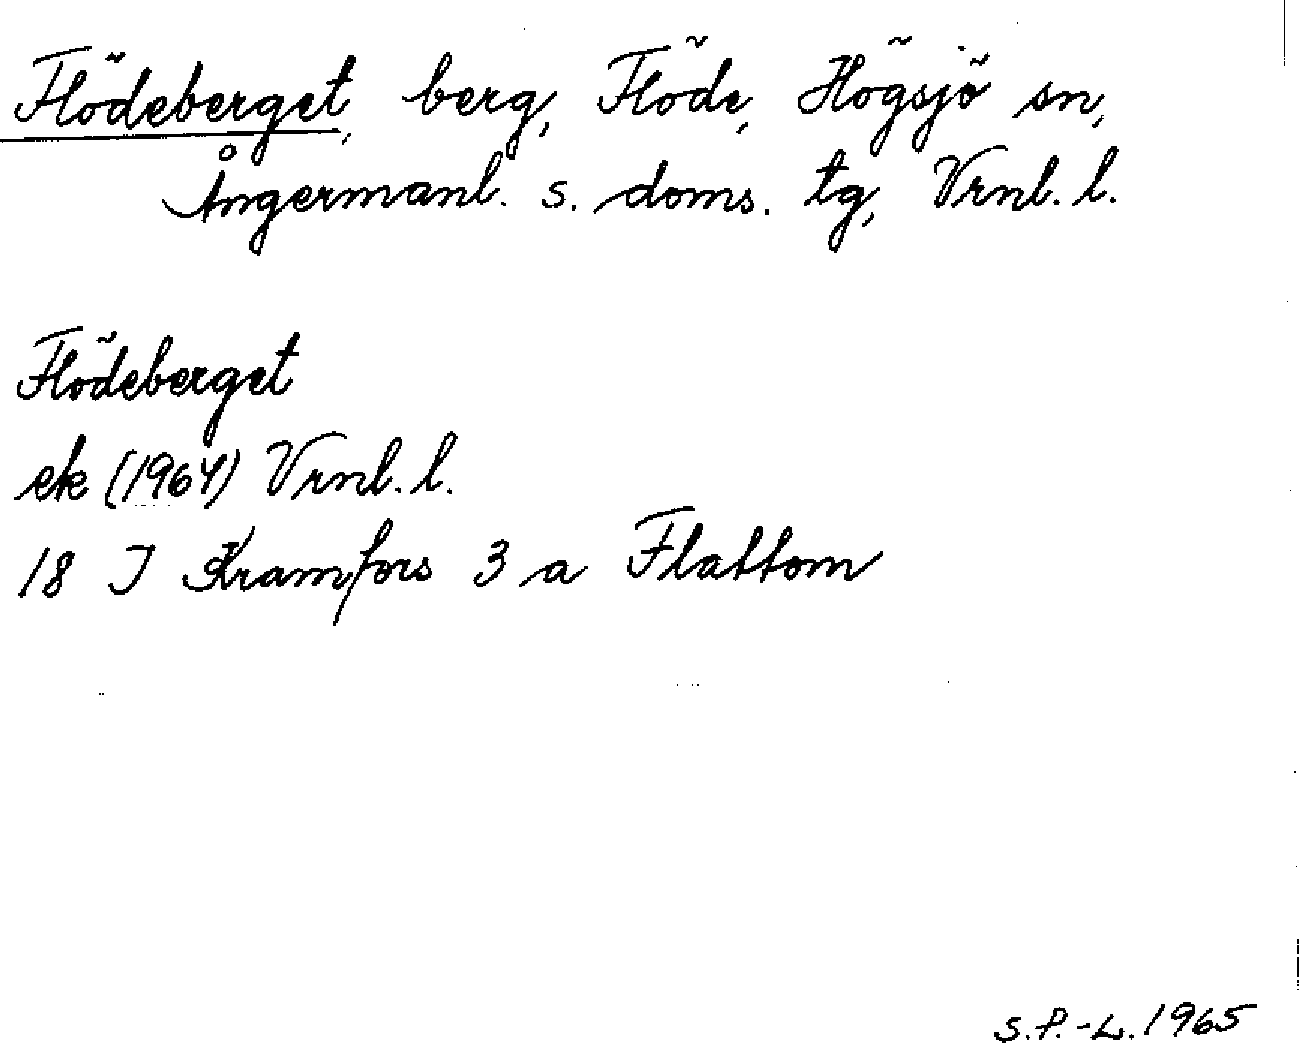 Flödeberget, berg, Flöde, Högsjö sn,
Ångermanl. s. doms. tg, Vrnl. l.
Flödeberget
ek (1964) Vrnl. l.
18 I Kramfors 3 a Flattom
S.P.-L. 1965